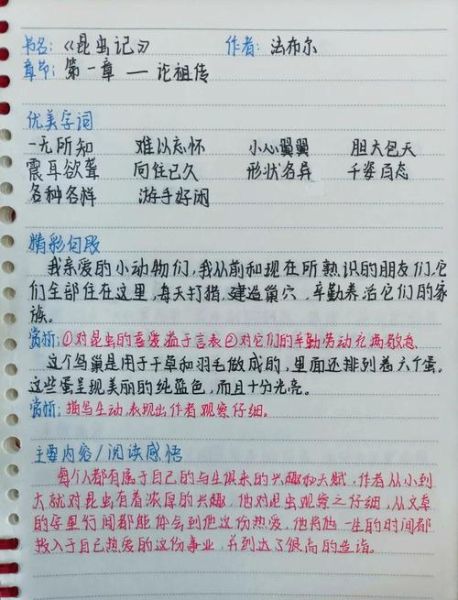 书名:《昆虫记》 作者: 法布尔
章节: 第一章 — 论祖传
优美字词
一无所知 难以忘怀 小心翼翼 胆大包天
震耳欲聋 向往已久 形状各异 千姿百态
各种各样 游手好闲
精彩句段
我亲爱的小动物们,我从前和现在所熟识的朋友们,它
们全部住在这里,每天打猎,建造巢穴,辛勤养活它们的家
族。
赏析:①对昆虫的喜爱溢于言表②对它们的辛勤劳动充满敬意
这个鸟巢是用干草和羽毛做成的,里面还排列着六个蛋。
这些蛋呈现美丽的纯蓝色,而且十分光亮。
赏析:描写生动,表现出作者观察仔细。
主要内容/阅读感悟
每个人都有属于自己的与生俱来的兴趣和天赋,作者从小到
大就对昆虫有着浓厚的兴趣,他对昆虫观察之仔细,从文章
的字里行间都能体会到他这份热爱,他将他一生的时间都
投入于自己热爱的这份事业,并到达了很高的造诣。